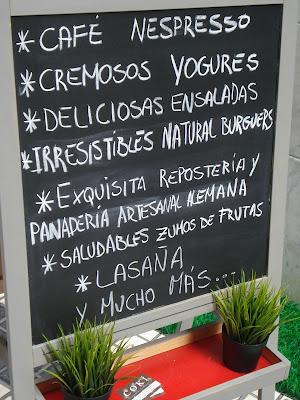 *CAFÉ NESPRESSO
*CREMOSOS YOGURES
*DELICIOSAS ENSALADAS
*IRRESISTIBLES NATURAL BURGUERS
*EXQUISITA REPOSTERÍA Y
PANADERÍA ARTESANAL ALEMANA
*SALUDABLES ZUMOS DE FRUTAS
*LASAÑA
Y MUCHO MÁS...